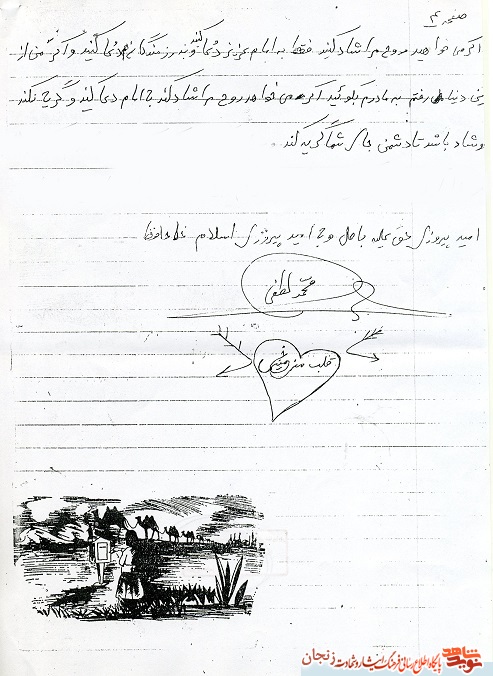 صفحه ۴
اگر می خواهید روح مرا شاد کنید فقط به امام عزیز دعا کنید و رزمندگان هم دعا کنید و اگر من از
این دنیا رفتم به مادرم بگوئید اگر می خواهد روح مرا شاد کند به امام دعا کند و گریه نکند
و شاد باشد تا دشمن جای شما گریه کند.
امید پیروزی حق علیه باطل و به امید پیروزی اسلام خداحافظ
محمد لطفی
قلب من
نوید شاهد
پایگاه اطلاع رسانی فرهنگ ایثار و شهادت زنجان